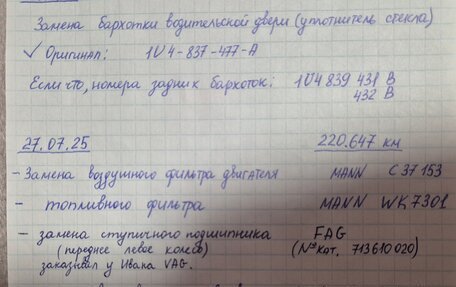 Замена бархотки водительской двери (уплотнитель стекла)
✓ Оригинал: 1U4-837-477-A
Если что, номера задних бархоток: 1U4 839 431 B
432 B
27.07.25 220.647 км
- Замена воздушного фильтра двигателя MANN C 37 153
- топливного фильтра MANN WK 7301
- замена ступичного подшипника FAG
(переднее левое колесо) (№ кат. 713610020)
заказывал у Ивана VAG.